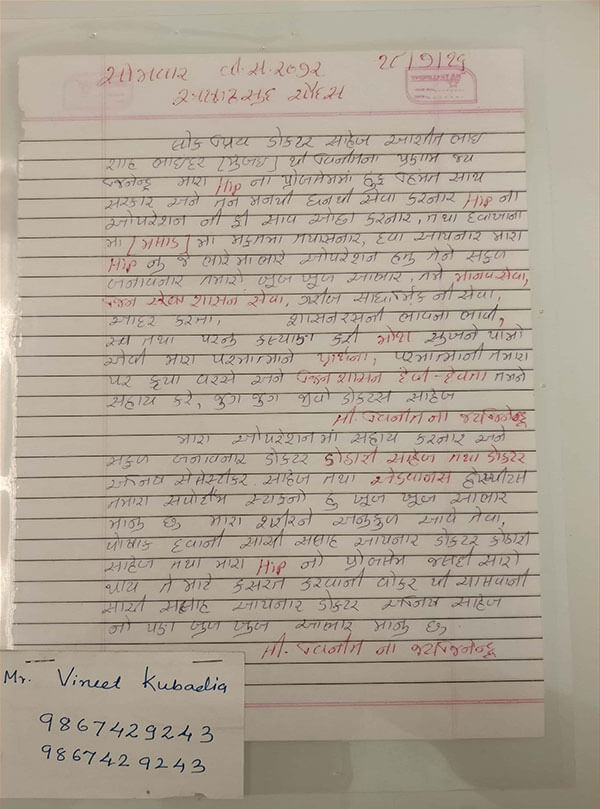 સોમવાર વી.સં.૨૦૭૨
અષાઢ સુદ ચૌદસ
લોકપ્રિય ડોકટર સાહેબ આશીત ભાઇ
શાહ ભાઇંદર (મુંબઇ) થી વિનીતના પ્રણામ જય
જિનેન્દ્ર મારા Hip ના પ્રોબલેમમાં હિંમત સાથ
સરકાર અને તન મનથી ધનથી સેવા કરનાર Hip ના
ઓપરેશન ની ફી સાવ ઓછી કરનાર, તથા દવાખાના
માં મા મફતમાં તપાસનાર, દવા આપનાર મારા
Hip નું જે ભારેમાભારે ઓપરેશન હતુ તેને સફળ
બનાવનાર તમારો ખૂબ ખૂબ આભાર, તમે માનવ સેવા,
જિન શાસન સેવા, ગરીબ સાધર્મિક ની સેવા,
આદર કરતા, શાસનરસની ભાવના ભાવી,
સ્વ તથા પરનું કલ્યાણ કરી મોક્ષ સુખને પામો
એવી મારા પરમાત્માને પ્રાર્થના, પરમાત્માની તમારા
પર કૃપા વરસે અને જિન શાસન દેવી-દેવતા તમને
સહાય કરે, જુગ જુગ જીવો ડોકટર સાહેબ
લી. વિનીત ના જયજિનેન્દ્ર
મારા ઓપરેશનમાં સહાય કરનાર અને
સફળ બનાવનાર ડોકટર કોઠારી સાહેબ તથા ડોકટર
સાહેબ તથા એડવાન્સ હોસ્પીટલ
તમારા સ્ટાફનો હું ખૂબ ખૂબ આભાર
માનુ છું મારા શરીરને અનુકુળ આવે તેવા,
પોષાક દવાની સાચી સલાહ આપનાર ડોકટર કોઠારી
સાહેબ તથા મારા Hip નો પ્રોબલેમ જલદી સારો
થાય તે માટે કસરત કરવાની વોકર થી ચાલવાની
સાચી સલાહ આપનાર ડોકટર સાહેબ
નો પણ ખૂબ ખૂબ આભાર માનુ છું.
લી. વિનીત ના જયજિનેન્દ્ર
Mr. Vineet Kubadia
9867429243
9867429243